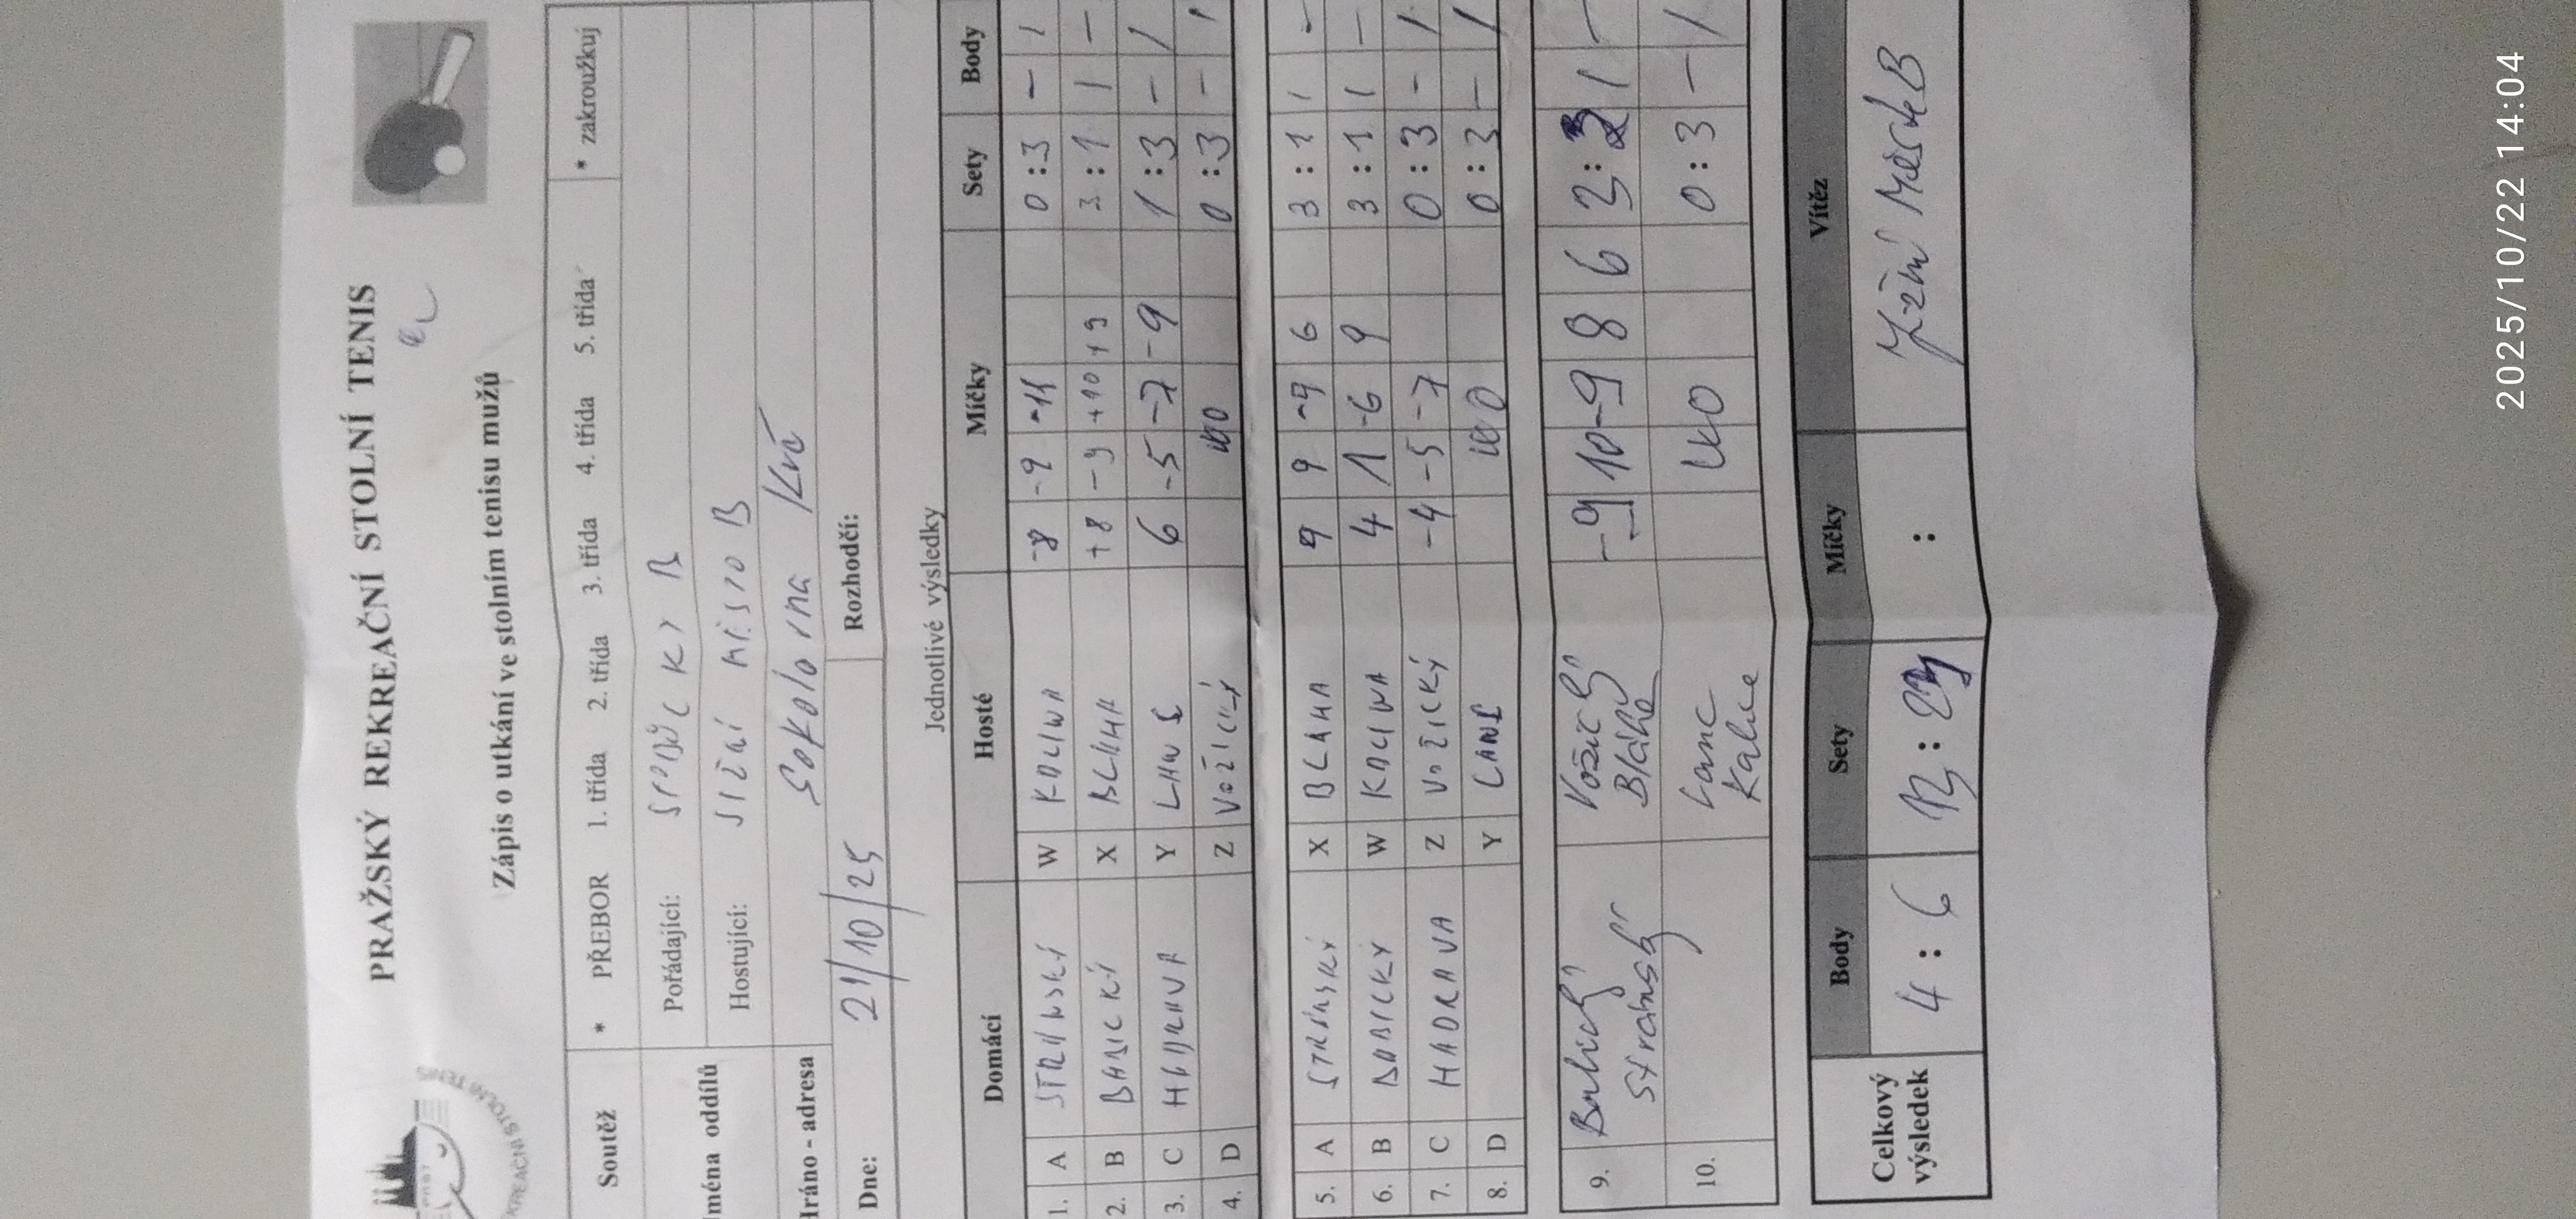 PRAŽSKÝ REKREAČNÍ STOLNÍ TENIS
Zápis o utkání ve stolním tenisu mužů
Soutěž * PŘEBOR 1. třída 2. třída 3. třída 4. třída 5. třída * zakroužkuj
Jména oddílů Pořádající: B
Hostující: B
Hráno - adresa Sokolovna Krč
Dne: 21/10/25 Rozhodčí:
Jednotlivé výsledky
Domácí Hosté Míčky Sety Body
1. A STRÁNSKÝ W KALINA -8 -9 -11 0:3 - 1
2. B BABICKÝ X BLÁHA +8 -9 +10 +9 3:1 1 -
3. C HADRAVA Y LANC 6 -5 -7 -9 1:3 - 1
4. D Z VOŽICKÝ WO 0:3 - 1
5. A STRÁNSKÝ X BLÁHA 9 9 -9 6 3:1 1 -
6. B BABICKÝ W KALINA 4 1 -6 9 3:1 1 -
7. C HADRAVA Z VOŽICKÝ -4 -5 -7 0:3 - 1
8. D Y LANC WO 0:3 - 1
9. Babický Vožický -9 10 -9 8 6 3:2 1 -
Stránský Bláha
10. Lanc WO 0:3 - 1
Kalina
Celkový výsledek Body Sety Míčky Vítěz
4 : 6 : : Jižní Město B
2025/10/22 14:04